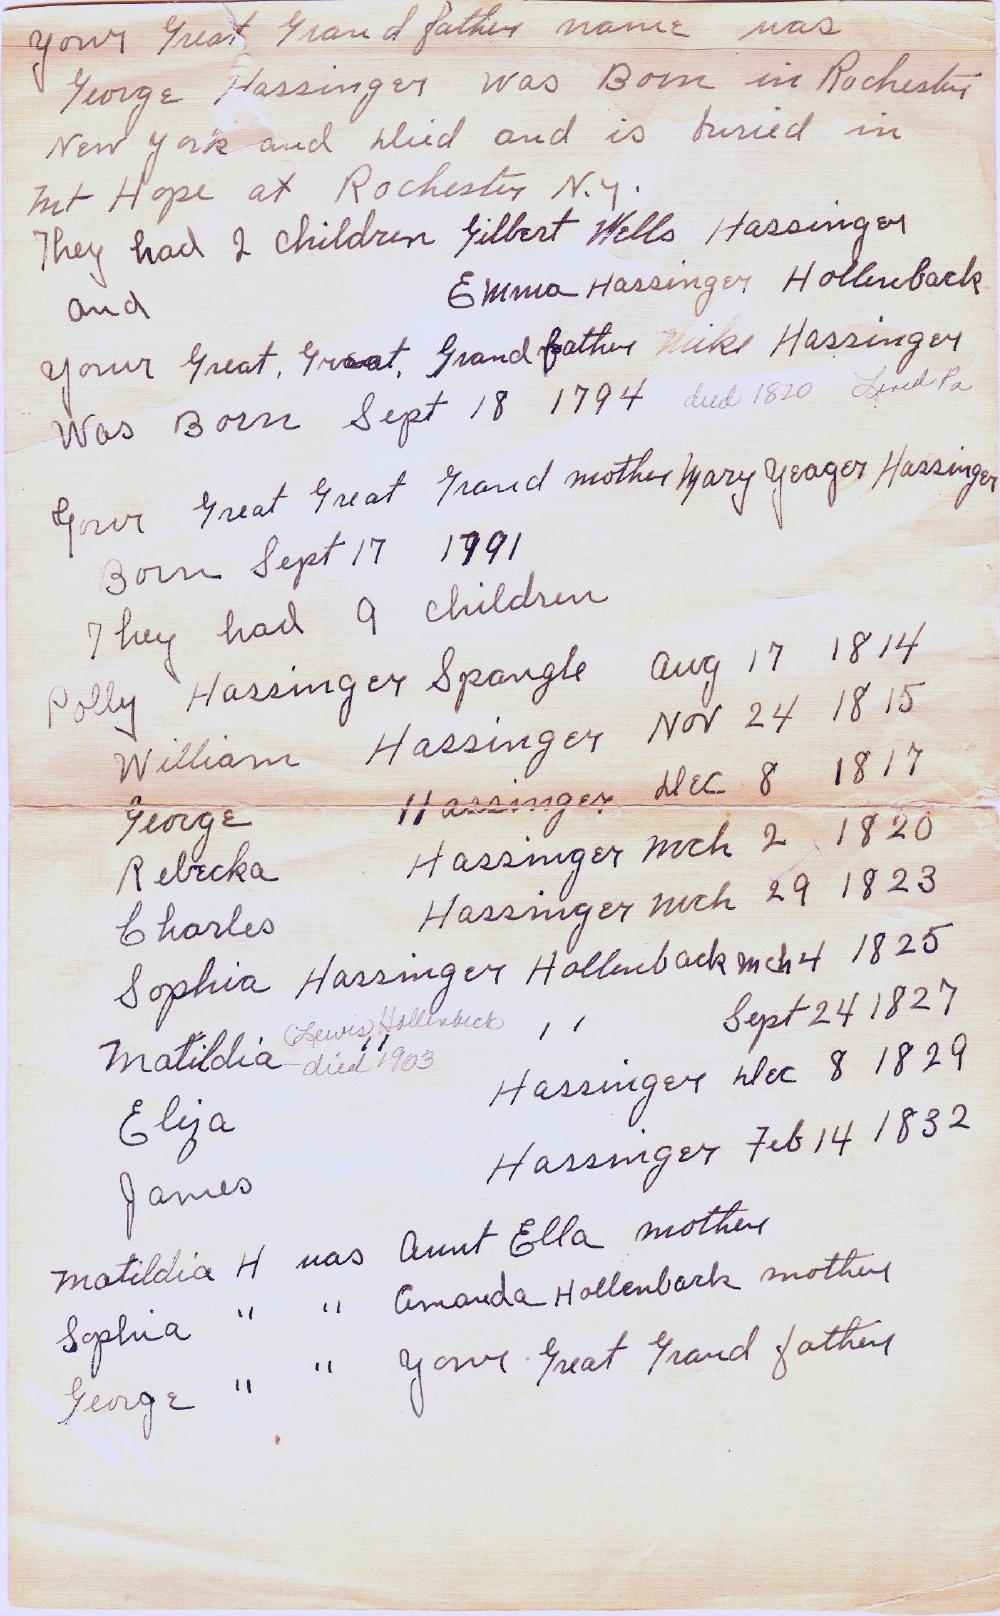 Your Great Grand father name was
George Hassinger was Born in Rochester
New York and died and is buried in
Mt Hope at Rochester N.Y.
They had 2 children Gilbert Wells Hassinger
and Emma Hassinger Hollenback
Your Great, Great, Grand father Mike Hassinger
Was Born Sept 18 1794 died 1820 Lived Pa
Your Great Great Grand mother Mary Yeager Hassinger
Born Sept 17 1791
They had 9 children
Polly Hassinger Spangle Aug 17 1814
William Hassinger Nov 24 1815
George Hassinger Dec 8 1817
Rebecka Hassinger Mch 2 1820
Charles Hassinger Mch 29 1823
Sophia Hassinger Hollenback Mch 4 1825
(Lewis) Hollenbeck
Matildia " " Sept 24 1827
died 1903
Eliza Hassinger Dec 8 1829
James Hassinger Feb 14 1832
Matildia H was Aunt Ella mother
Sophia " " Amanda Hollenback mother
George " " Your Great Grand father